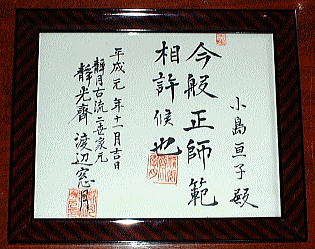 小島亘子殿
今般正師範
相許候也
平成元年十一月吉日
静月古流二世家元
静光斉 渡辺窓月